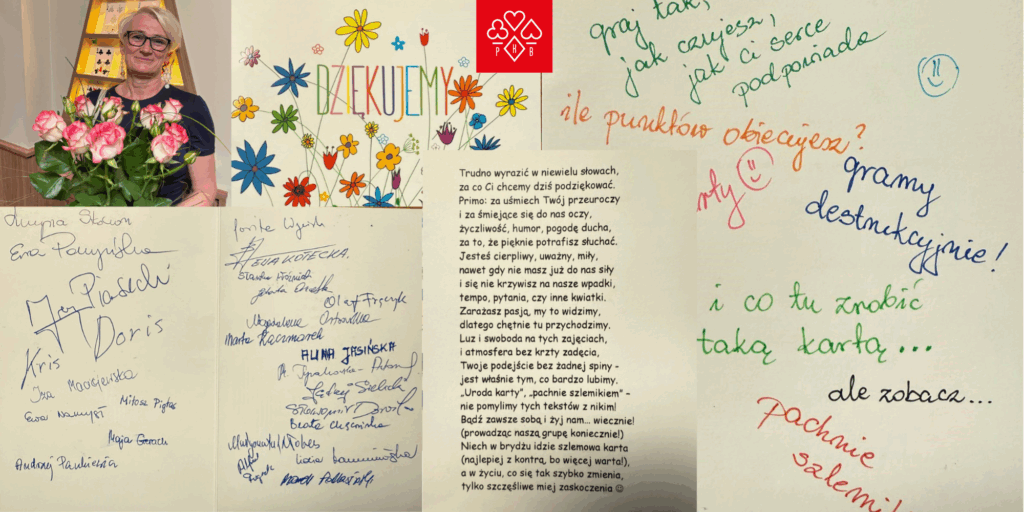 DZIĘKUJEMY
P H B
graj tak,
jak czujesz,
jak ci serce
podpowiada
ile punktów obiecujesz?
gramy
destrukcyjnie!
i co tu zrobić
taką kartą...
ale zobacz...
pachnie
Trudno wyrazić w niewielu słowach,
za co Ci chcemy dziś podziękować.
Primo: za uśmiech Twój przeuroczy
i za śmiejące się do nas oczy,
życzliwość, humor, pogodę ducha,
za to, że pięknie potrafisz słuchać.
Jesteś cierpliwy, uważny, miły,
nawet gdy nie masz już do nas siły
i się nie krzywisz na nasze wpadki,
tempo, pytania, czy inne kwiatki.
Zarażasz pasją, my to widzimy,
dlatego chętnie tu przychodzimy.
Luz i swoboda na tych zajęciach,
i atmosfera bez krzty zadęcia,
Twoje podejście bez żadnej spiny -
jest właśnie tym, co bardzo lubimy.
"Uroda karty", "pachnie szlemikiem" -
nie pomylimy tych tekstów z nikim!
Bądź zawsze sobą i żyj nam... wiecznie!
(prowadząc naszą grupę koniecznie!)
Niech w brydżu idzie szlemowa karta
(najlepiej z kontrą, bo więcej warta!),
a w życiu, co się tak szybko zmienia,
tylko szczęśliwe miej zaskoczenia ☺
Ewa
Piasecki
Doris
Kris
Iza Maciejewska
Ewa Namysł
Miłosz Piętas
Maja
Andrzej
EWA KOTECKA
Olaf
Magdalena
Marta Kaczmarek
ALINA JASIŃSKA
Sławomir
Beata